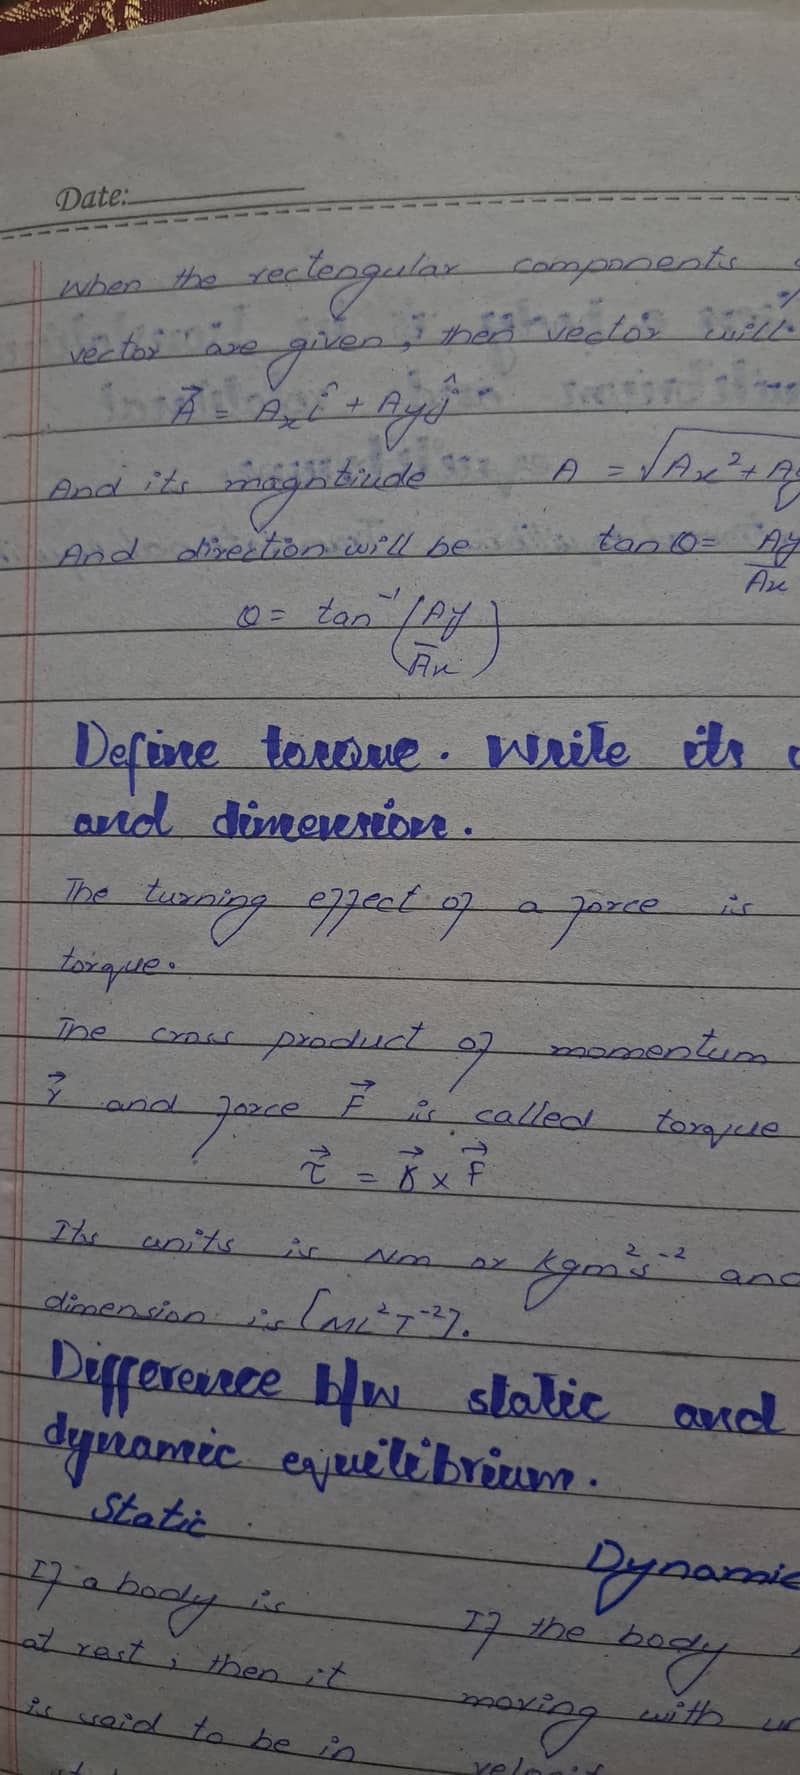 Date:
When the rectengular components
vector are given, then vector will
A⃗ = Axî + Ayĵ
And its magntiude A = √Ax² + Ay
And direction will be tan θ = Ay/Ax
θ = tan⁻¹(Ay/Ax)
Define torque. Write its
and dimension.
The turning effect of a force is
torque.
The cross product of momentum
r⃗ and force F⃗ is called torque
τ⃗ = r⃗ × F⃗
Its units is Nm or kgm²s⁻² and
dimension is [ML²T⁻²].
Difference b/w static and
dynamic equilibrium.
Static
Dynamic
If a body is
at rest, then it
is said to be in
If the body
moving with